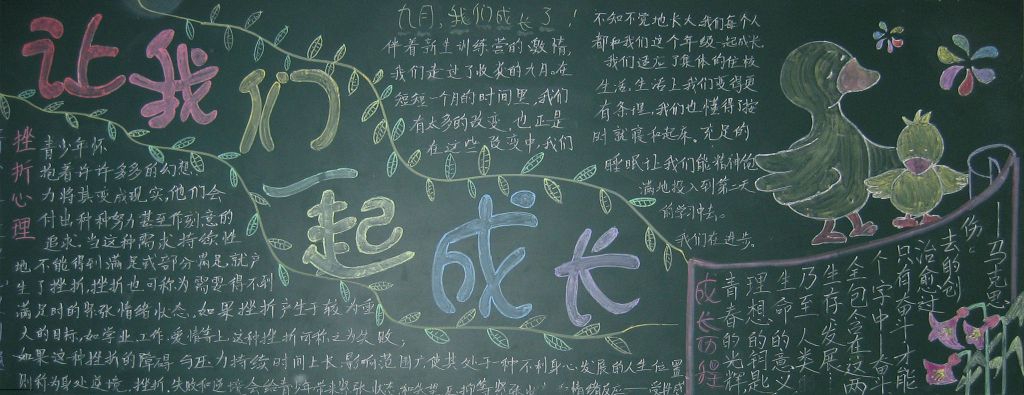 让我们
一起成长
九月,我们成长了!
伴着新生训练营的激情,
我们走过了收获的九月。在
短短一个月的时间里,我们
有太多的改变,也正是
在这些改变中,我们
不知不觉地长大,我们每个人
都和我们这个年级一起成长
我们适应了集体的住校
生活,生活上我们变得更
有条理,我们也懂得了按
时就寝和起床。充足的
睡眠让我们能精神饱
满地投入到第二天
的学习中去。
我们在进步。
挫折心理
青少年怀
抱着许许多多的幻想
力将其变成现实,他们会
付出种种努力甚至作刻意的
追求。当这种需求持续性
地不能得到满足或部分满足就产
生了挫折,挫折也可称为需要得不到
满足时的紧张情绪状态,如果挫折产生于较为重
大的目标,如学业、工作、爱情等上,这种挫折可称之为失败;
如果这种挫折的障碍与压力持续时间上长,影响范围广,使其处于一种不利身心发展的人生位置
则称为身处逆境。挫折、失败和逆境会给青少年带来紧张状态和
情绪反应
成长历程
青春的光辉
理想的钥匙
生命的意义
乃至人类
生存发展…
全包含在这两
个字中——奋斗
只有奋斗才能
治愈过
去的创
伤。
——马克思